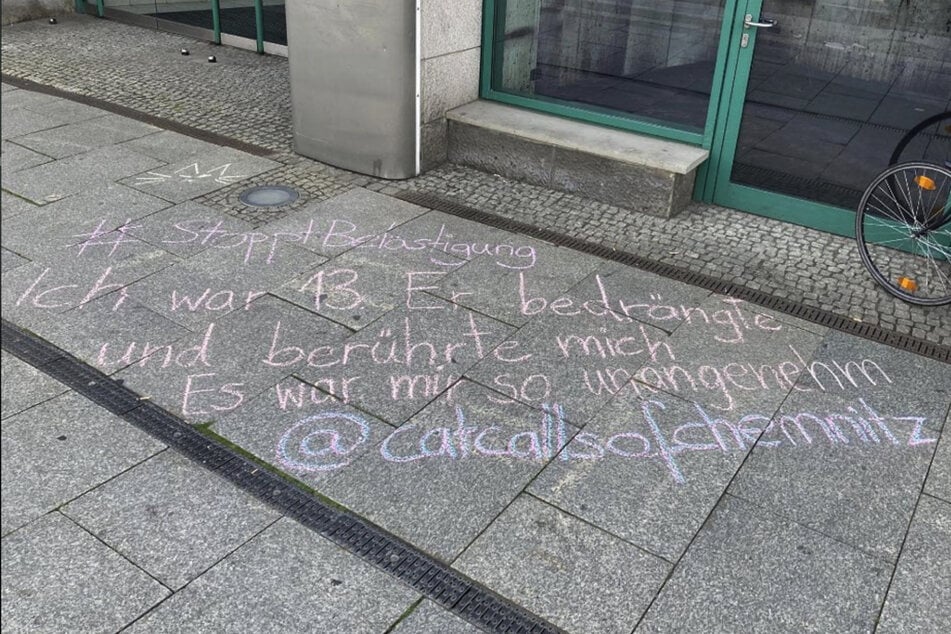 #StopptBelästigung
Ich war 13. Er bedrängte
und berührte mich
Es war mir so unangenehm
@catcallsofchemnitz